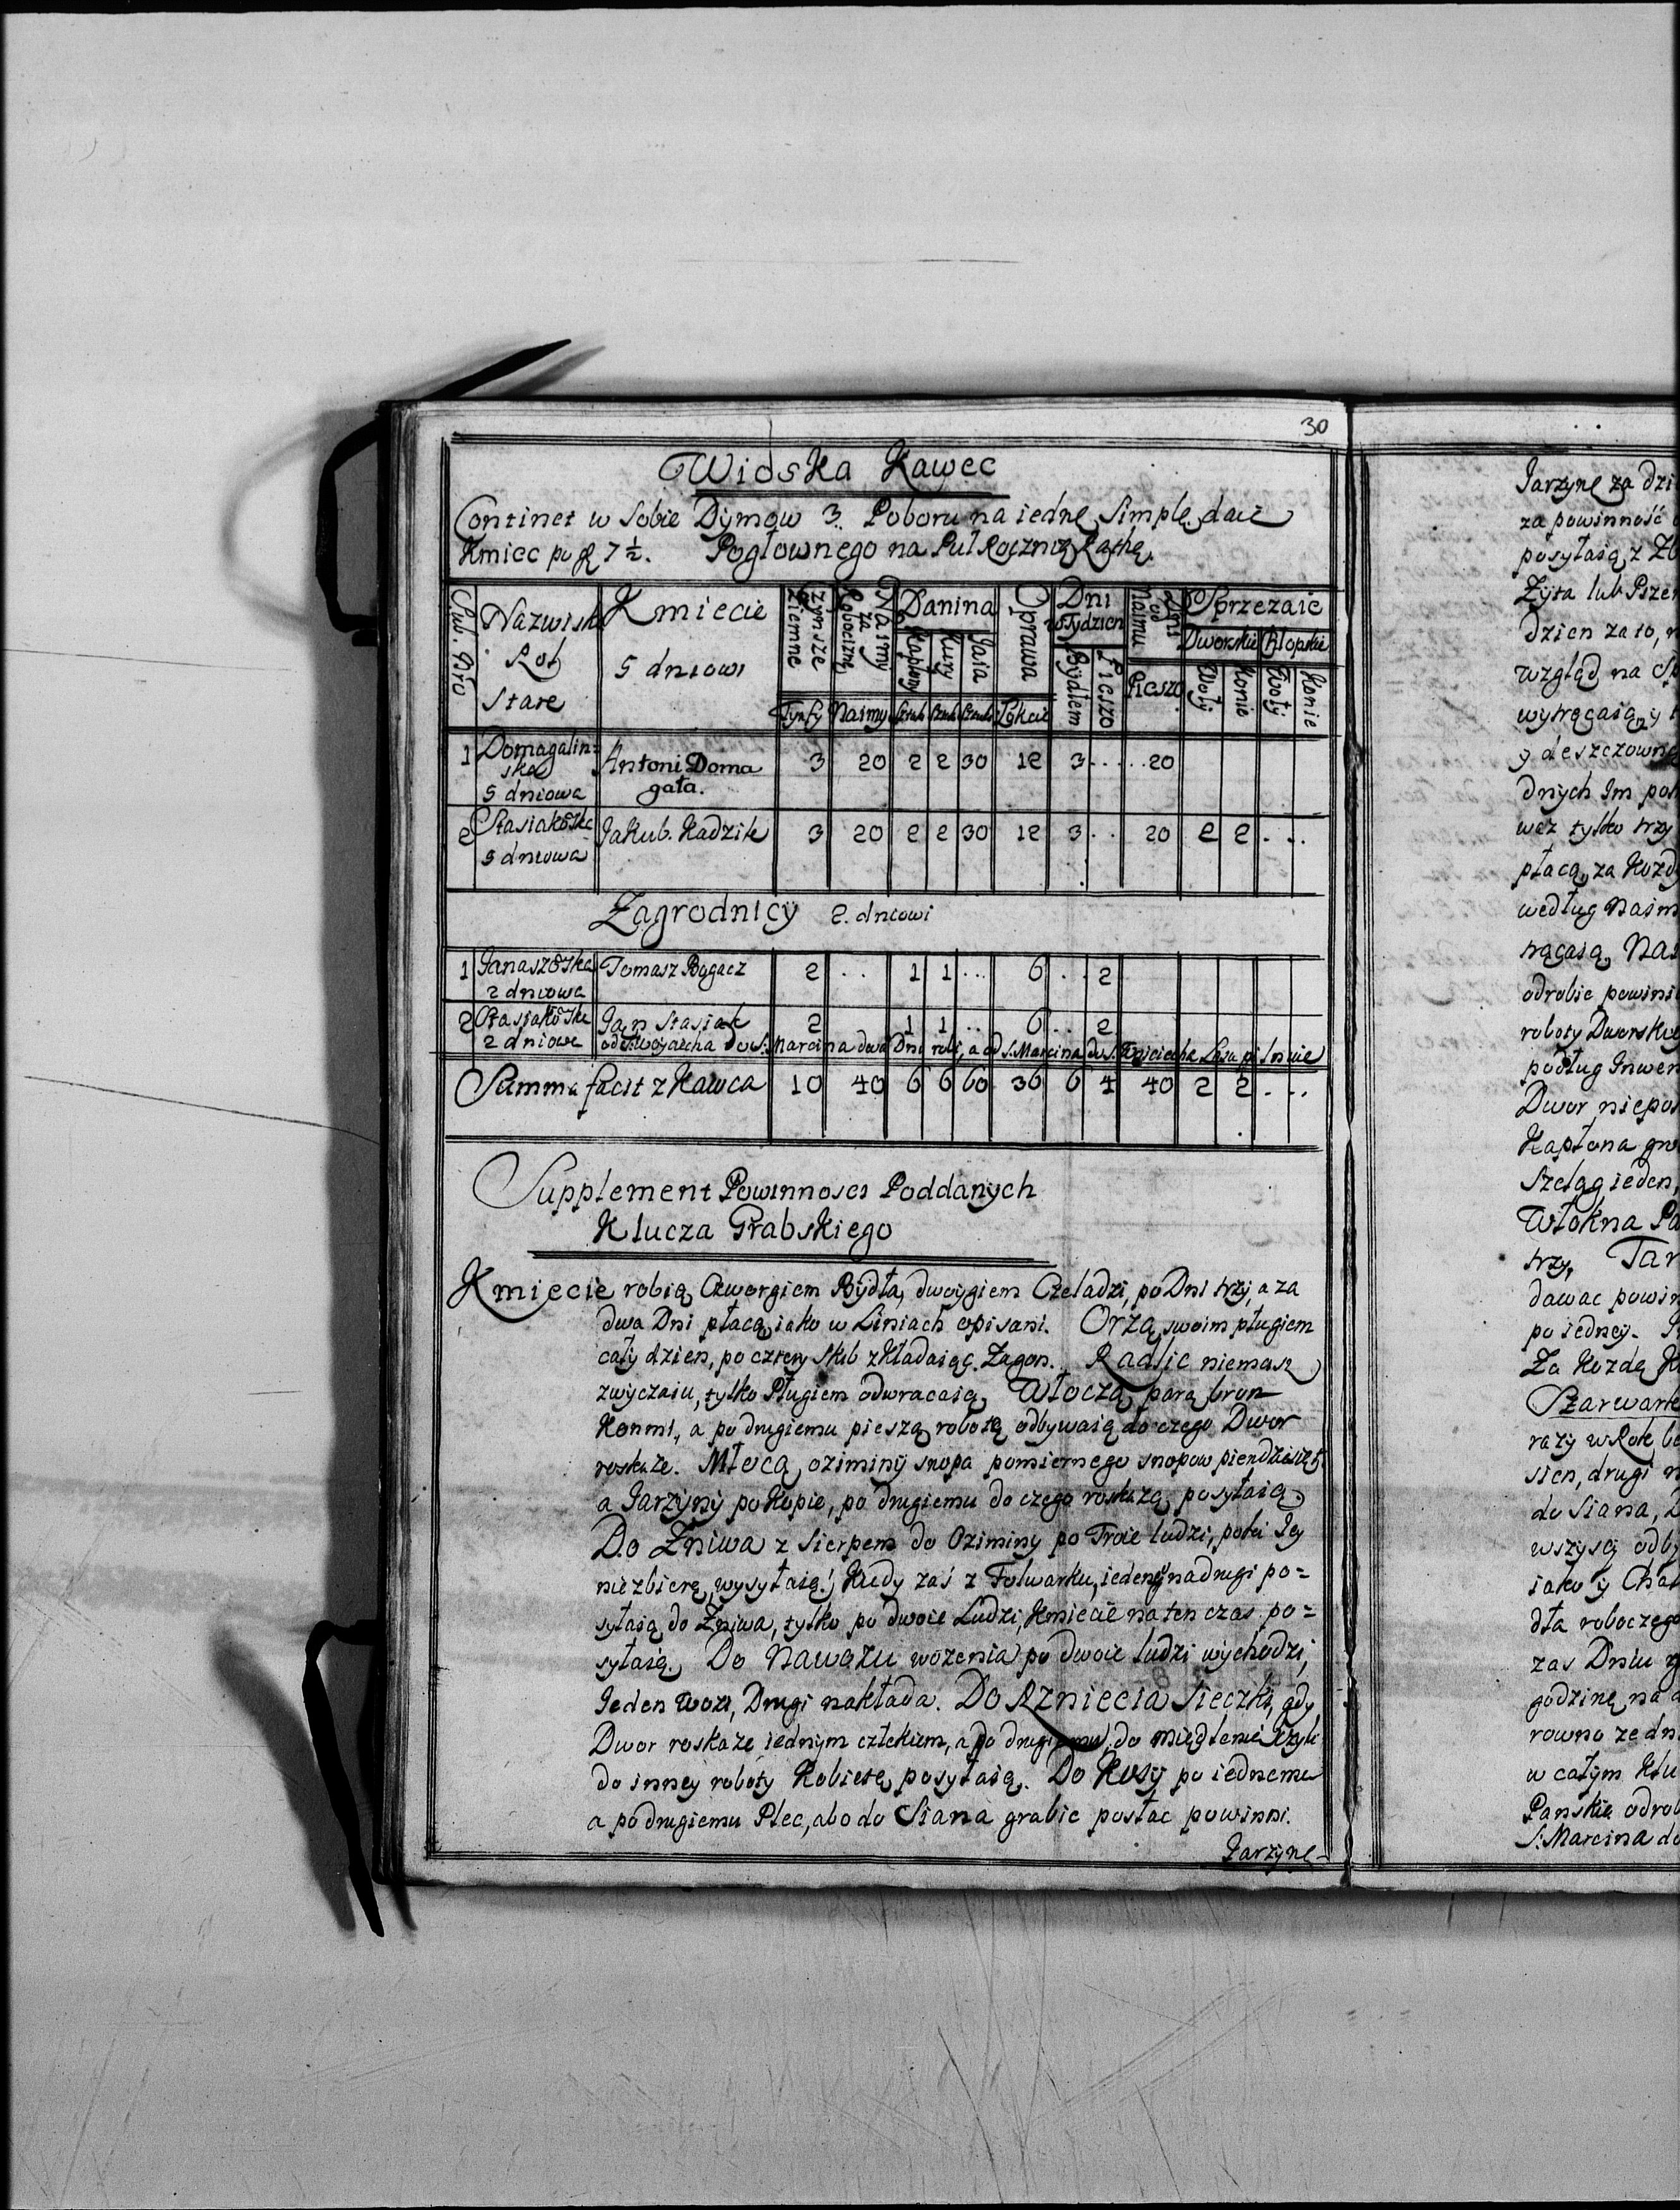 30
Wioska Kawec
Continet w sobie Dymow 3. Poboru na iednę Simplę daie
Kmiec po 7 ½. Pogłownego na Puł Roczną Rathę.
Sub. Nro | Nazwisk Rol Stare | Kmiecie 5 dniowi | Czynsze Ziemne | Naimy za Robociznę | Danina | Oprawa | Dni w Tydzien | Dni od Naimu | Sprzezaie
Kapłony | Kury | Jaia | Bydłem | Pieszo | Pieszo | Dworskie | Chłopskie
Woły | Konie | Woły | Konie
Tynfy | Naimy | Sztuk | Sztuk | Sztuk | Łokcie
1 | Domagalin= ska 5 dniowa | Antoni Doma gała. | 3 | 20 | 2 | 2 | 30 | 12 | 3 . . | . . 20
2 | Stasiakoska 5 dniowa | Jakub. Kadzik | 3 | 20 | 2 | 2 | 30 | 12 | 3 | . . | 20 | 2 | 2 | . | . .
Zagrodnicy 2. dniowi
1 | Janaszoska 2 dniowa | Tomasz Bogacz | 2 | . . | 1 | 1 | . . . | 6 | . . | 2
2 | Stasiakoska 2 dniowa | Jan Stasiak | 2 | 1 | 1 | . . | 6 | . . | 2
od S. Woyciecha do S: Marcina dwa Dni robi, a od S. Marcina do S. Woyciecha Lasu pilnuie
Summa facit z Kawca | 10 | 40 | 6 | 6 | 60 | 36 | 6 | 4 | 40 | 2 | 2 | . | . .
Supplement Powinnosci Poddanych
Klucza Grabskiego
Kmiecie robią Czworgiem Bydła, dwoygiem Czeladzi, po Dni trzy, a za
dwa Dni płacą, iako w Liniach opisani. Orzą swoim pługiem
cały dzien, po cztery Skib zkładaiąc Zagon. Radlic niemasz
zwyczaiu, tylko Pługiem odwracaią. Włoczą parą bron
Konmi, a po drugiemu pieszą robotę odbywaią do czego Dwor
roskaże. Młocą oziminy snopa pomiernego snopow piendziesiąt
a Jarzyny po Kopie, po drugiemu do czego roskażą posyłaią.
Do Zniwa z Sierpem do Oziminy po Troie ludzi, poki Jey
niezbierę, wysyłaią! Kiedy zaś z Folwarku, ieden na drugi po=
syłaią do Zniwa, tylko po dwoie Ludzi, Kmiecie na ten czas po=
syłaią. Do Nawozu wożenia po dwoie ludzi wychodzi,
Jeden wozi, Drugi nakłada. Do Rzniecia sieczki, gdy
Dwor roskaże, iednym człekiem, a po drugiemu, do międlenia czyli
do inney roboty Kobietę posyłaią. Do Kosy po iednemu
a po drugiemu Plec, abo do Siana grabic posłac powinni.
Jarzynę
Jarzynę za dzi
za powinność
posyłaią, z
Zyta lub Pszen
dzien za to,
wzgląd na
wytrącaią, y
y deszczown
dnych Im
waz tylko trzy
płacą, za Kożd
według Naim
trącaią, Nai
odrobic powini
roboty Dworskie
podług Inwen
Dwor niepo
Kapłona gro
Szeląg ieden,
Włokna Pa
trzy, Tar
dawac powin
po iedney.
Za Kożdą
Szarwark
razy w Rok
sien, drugi
do Siana,
wszyscy odby
iako y Chał
dła roboczego
zas Dniu
godzinę na
rowno ze dn
w całym Klu
Panskie odrob
S: Marcina do